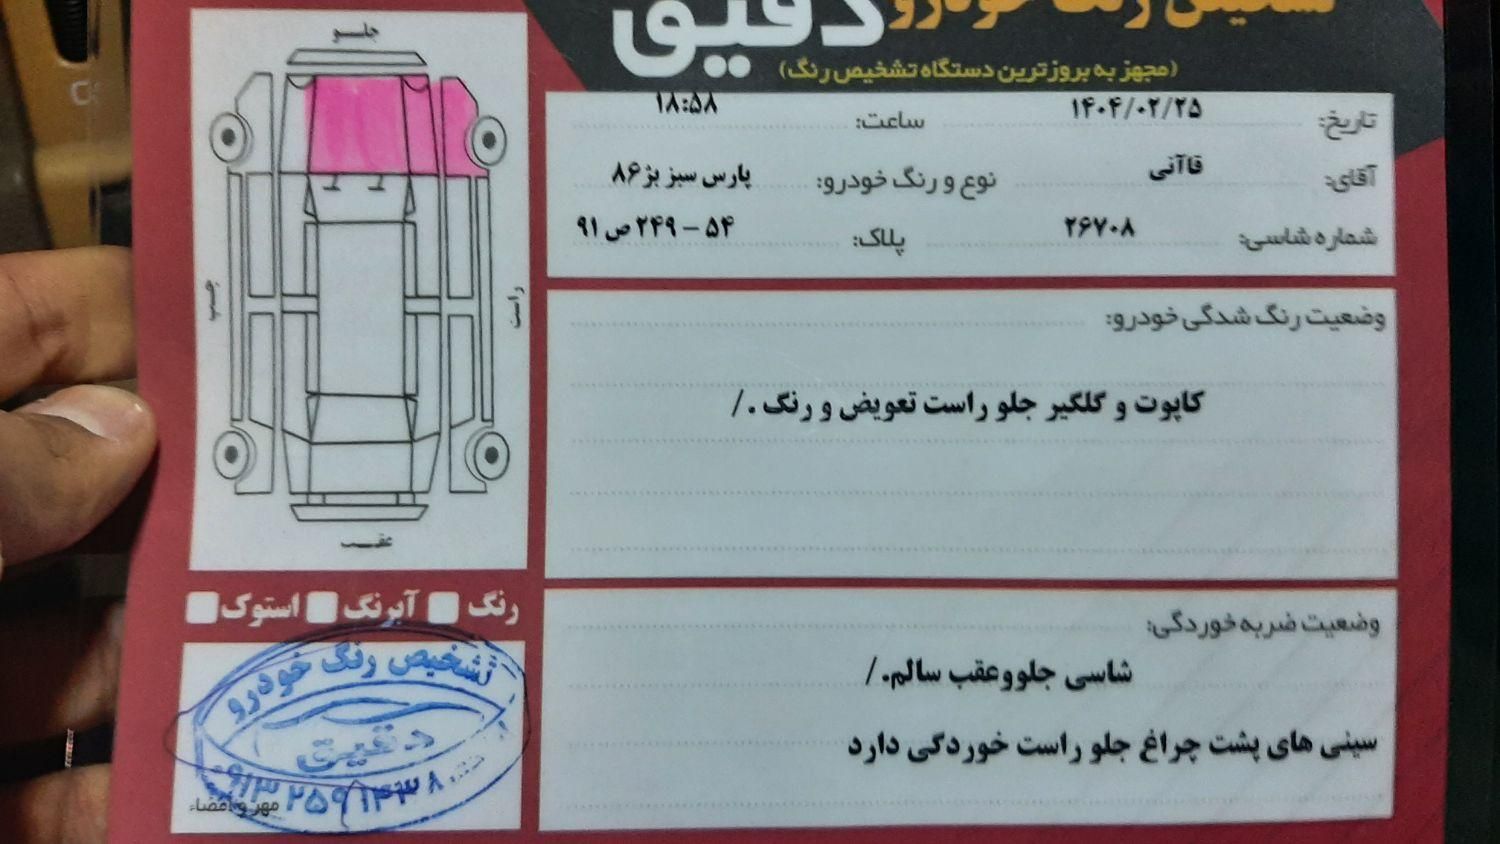 تشخیص رنگ خودرو دقیق
(مجهز به بروزترین دستگاه تشخیص رنگ)
تاریخ: ۱۴۰۴/۰۲/۲۵ ساعت: ۱۸:۵۸
آقای: قاآنی نوع و رنگ خودرو: پارس سبز بژ ۸۶
شماره شاسی: ۲۶۷۰۸ پلاک: ۵۴ – ۲۴۹ ص ۹۱
وضعیت رنگ شدگی خودرو:
کاپوت و گلگیر جلو راست تعویض و رنگ ./
وضعیت ضربه خوردگی:
شاسی جلووعقب سالم./
سینی های پشت چراغ جلو راست خوردگی دارد
جلـو
چپ
راست
عقـب
رنگ آبرنگ استوک
تشخیص رنگ خودرو
دقیق
مهر و امضاء